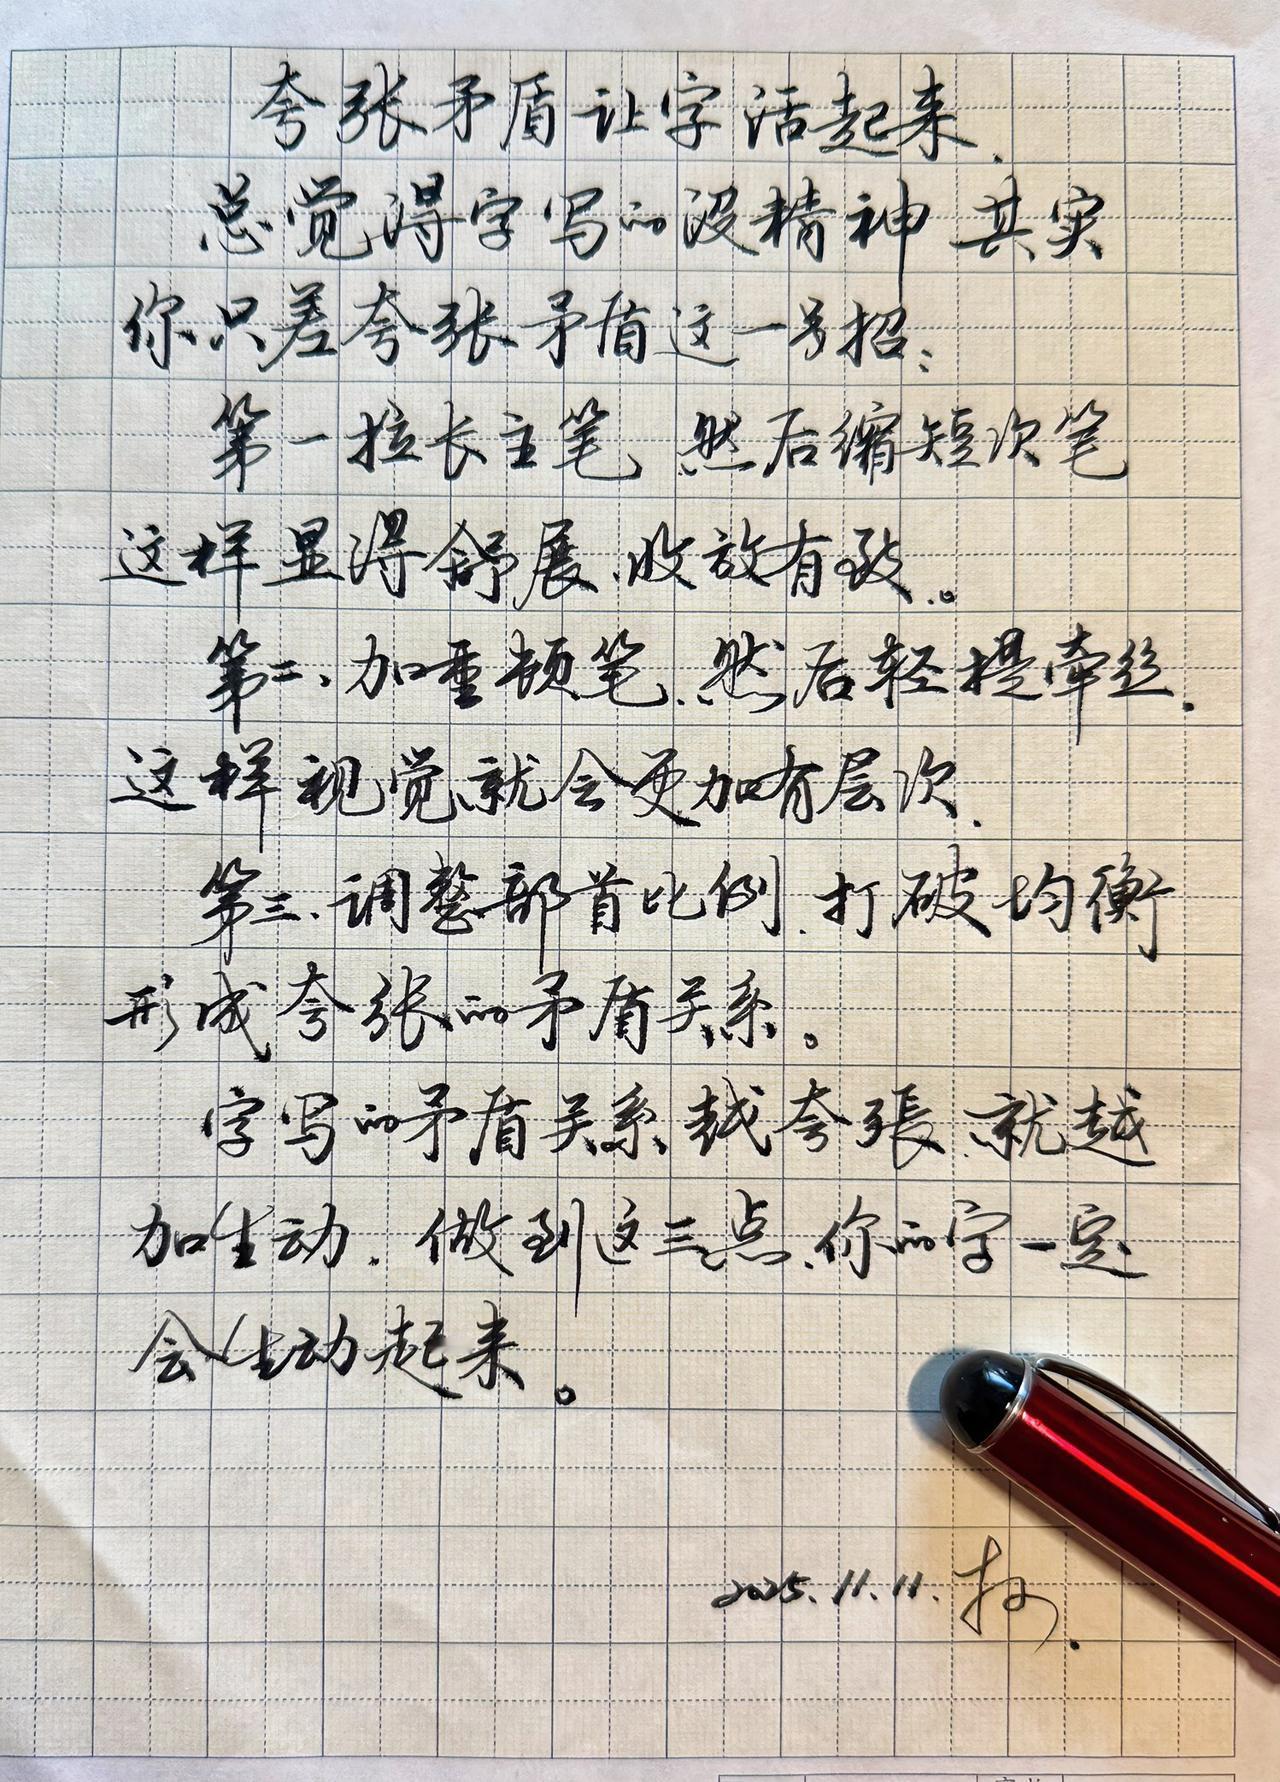 夸张矛盾让字活起来.
总觉得字写的没精神 其实
你只差夸张矛盾这一号招:
第一拉长主笔 然后缩短次笔
这样显得舒展.收放有致.。
第二、加重顿笔.然后轻提牵丝.
这样视觉就会更加有层次.
第三.调整部首比例.打破均衡
形成夸张的矛盾关系。
字写的矛盾关系越夸張.就越
加生动.做到这三点.你的字一定
会生动起来。
2025.11.11.